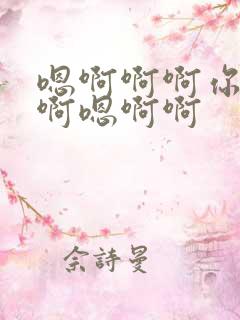 嗯啊啊啊你
啊嗯啊啊
佘詩曼